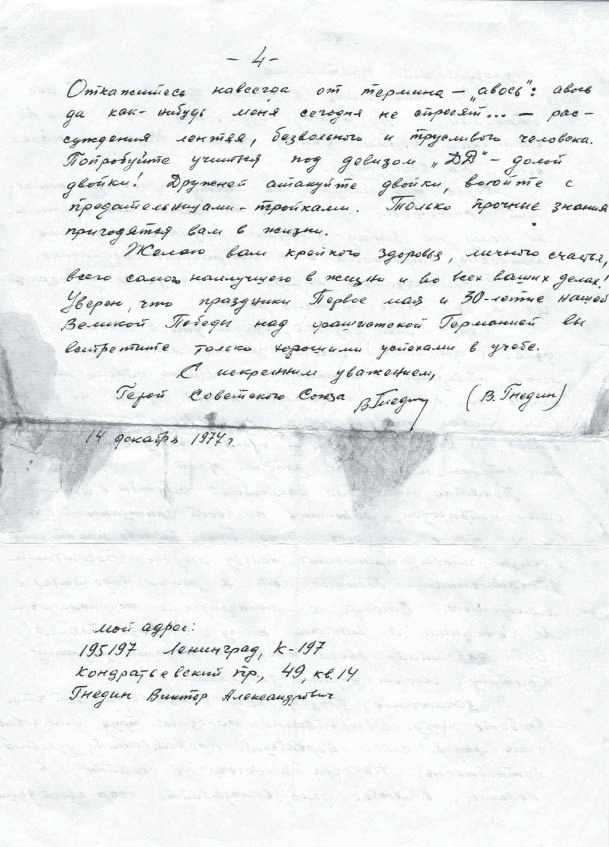 - 4 -
Откажитесь навсегда от термина — „авось": авось
да как-нибудь меня сегодня не спросят... — рас-
суждения лентяя, безвольного и трусливого человека.
Попробуйте учиться под девизом „ДД" - долой
двойки! Дружней атакуйте двойки, воюйте с
предательницами-тройками. Только прочные знания
пригодятся вам в жизни.
Желаю вам крепкого здоровья, личного счастья,
всего самого наилучшего в жизни и во всех ваших делах!
Уверен, что праздники Первое мая и 30-летие нашей
Великой Победы над фашистской Германией вы
встретите только хорошими успехами в учебе.
С искренним уважением,
Герой Советского Союза ВГнедин (В. Гнедин)
14 декабря 1974 г.
мой адрес:
195197 Ленинград, К-197
Кондратьевский пр, 49, кв. 14
Гнедин Виктор Александрович